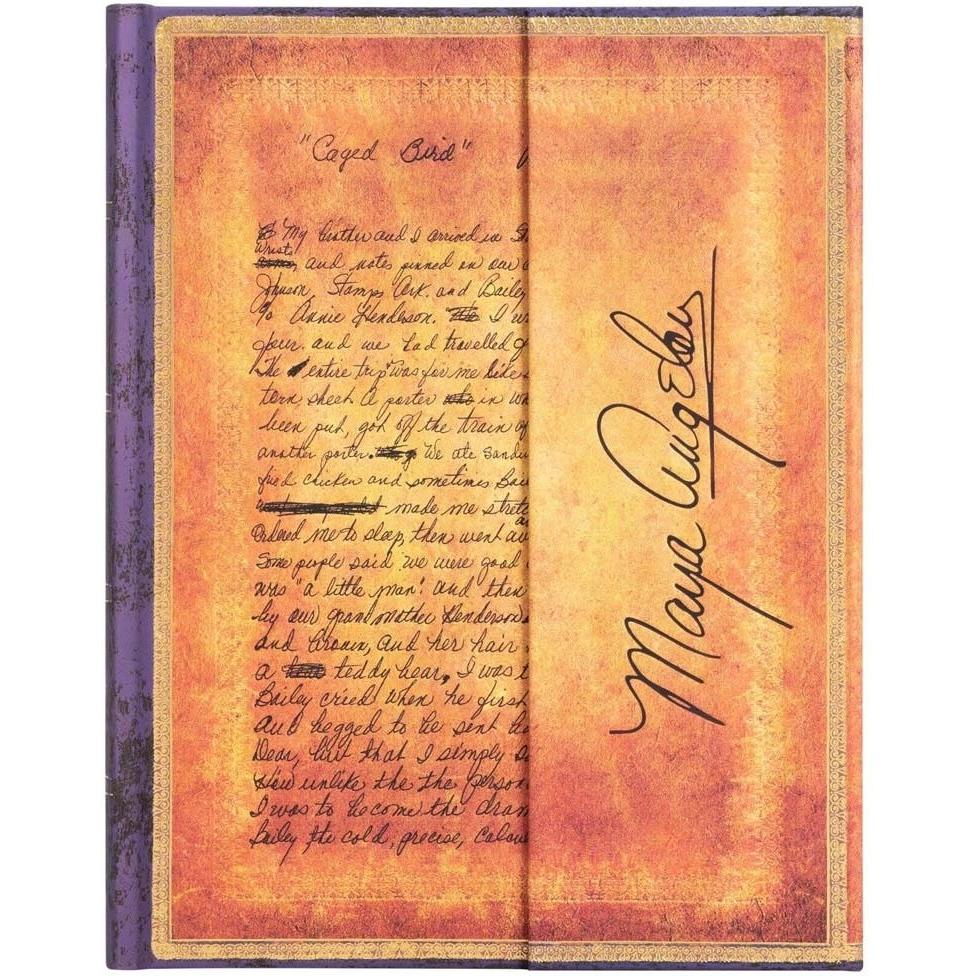 "Caged Bird"
My brother and I arrived in
Wrists
and notes pinned on our
Johnson, Stamps Ark. and Bailey
℅ Annie Henderson. I
four. and we had travelled
The entire trip was for me like
torn sheet. A porter in
been put, got off the train
another porter. We ate
fried chicken and sometimes
made me
Ordered me to sleep, then went
Some people said we were good
was "a little man". And then
by our grandmother Henderson
and brown, and her hair
a teddy bear, I was
Bailey cried when he first
And begged to be sent
Dear, but that I simply
How unlike the the person
I was to become the
Bailey the cold, precise,
Maya Angelou